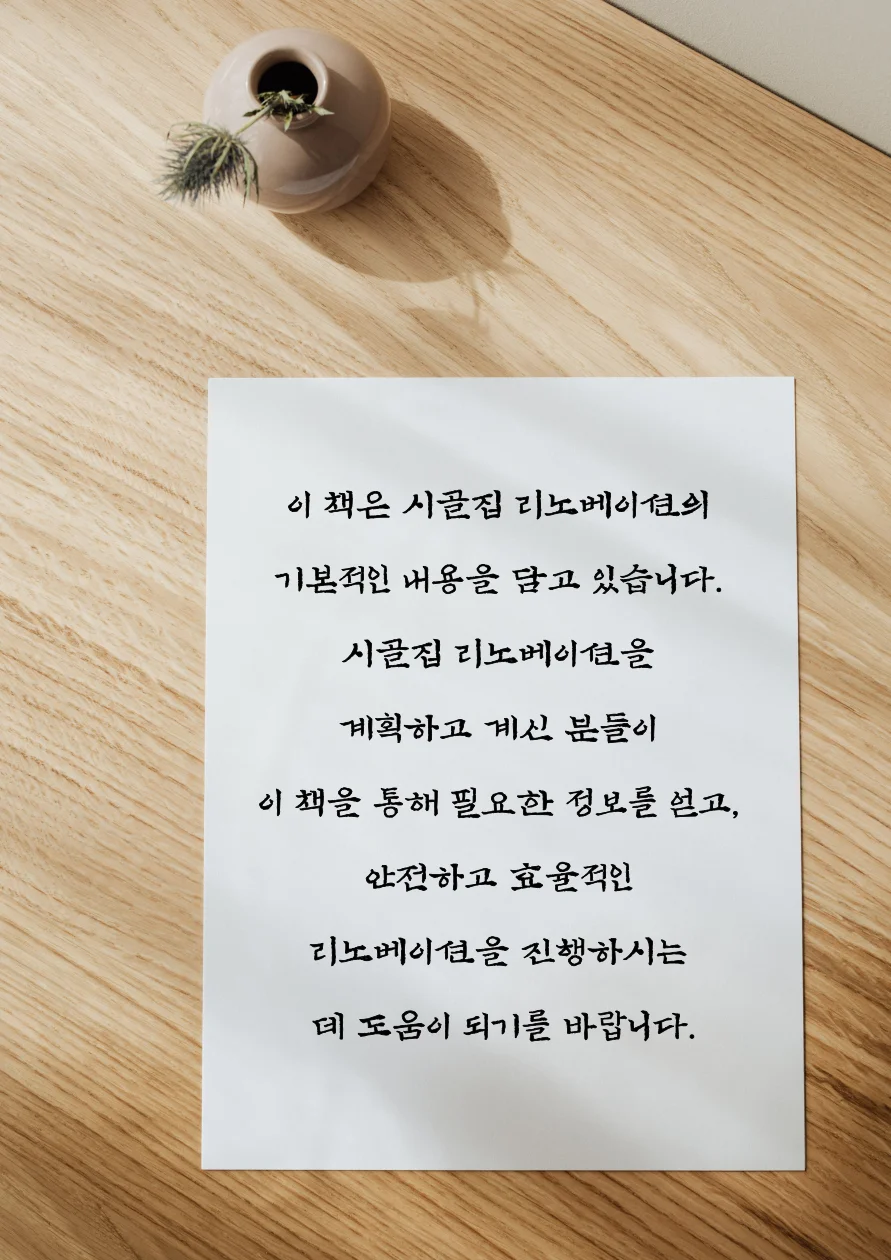 이 책은 시골집 리노베이션의
기본적인 내용을 담고 있습니다.
시골집 리노베이션을
계획하고 계신 분들이
이 책을 통해 필요한 정보를 얻고,
안전하고 효율적인
리노베이션을 진행하시는
데 도움이 되기를 바랍니다.